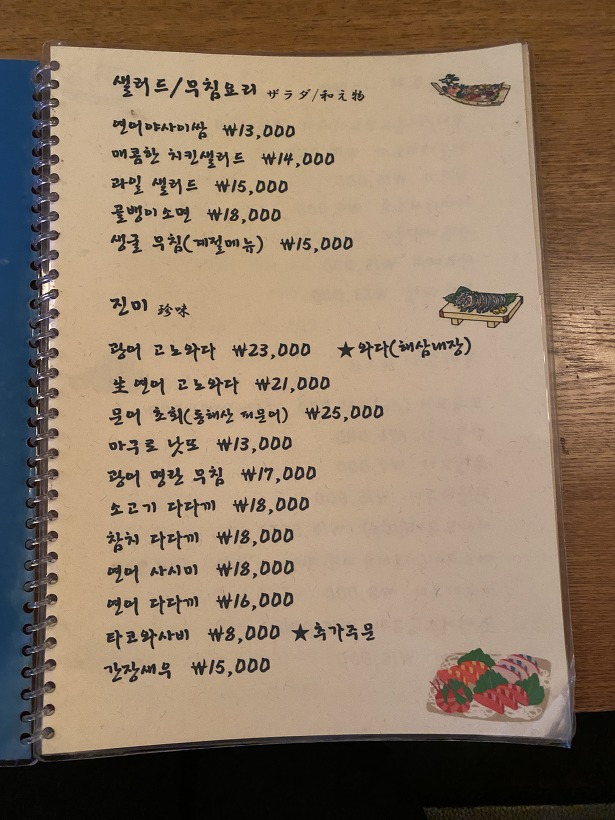 샐러드/무침요리 ザラダ/和え物
연어야사이쌈 ₩13,000
매콤한 치킨샐러드 ₩14,000
과일 샐러드 ₩15,000
골뱅이소면 ₩18,000
생굴 무침(계절메뉴) ₩15,000
진미 珍味
광어 고노와다 ₩23,000 ★와다(해삼내장)
生연어 고노와다 ₩21,000
문어 초회(동해산 피문어) ₩25,000
마구로 낫또 ₩13,000
광어 명란 무침 ₩17,000
소고기 다다끼 ₩18,000
참치 다다끼 ₩18,000
연어 사시미 ₩18,000
연어 다다끼 ₩16,000
타코와사비 ₩8,000 ★추가주문
간장새우 ₩15,000